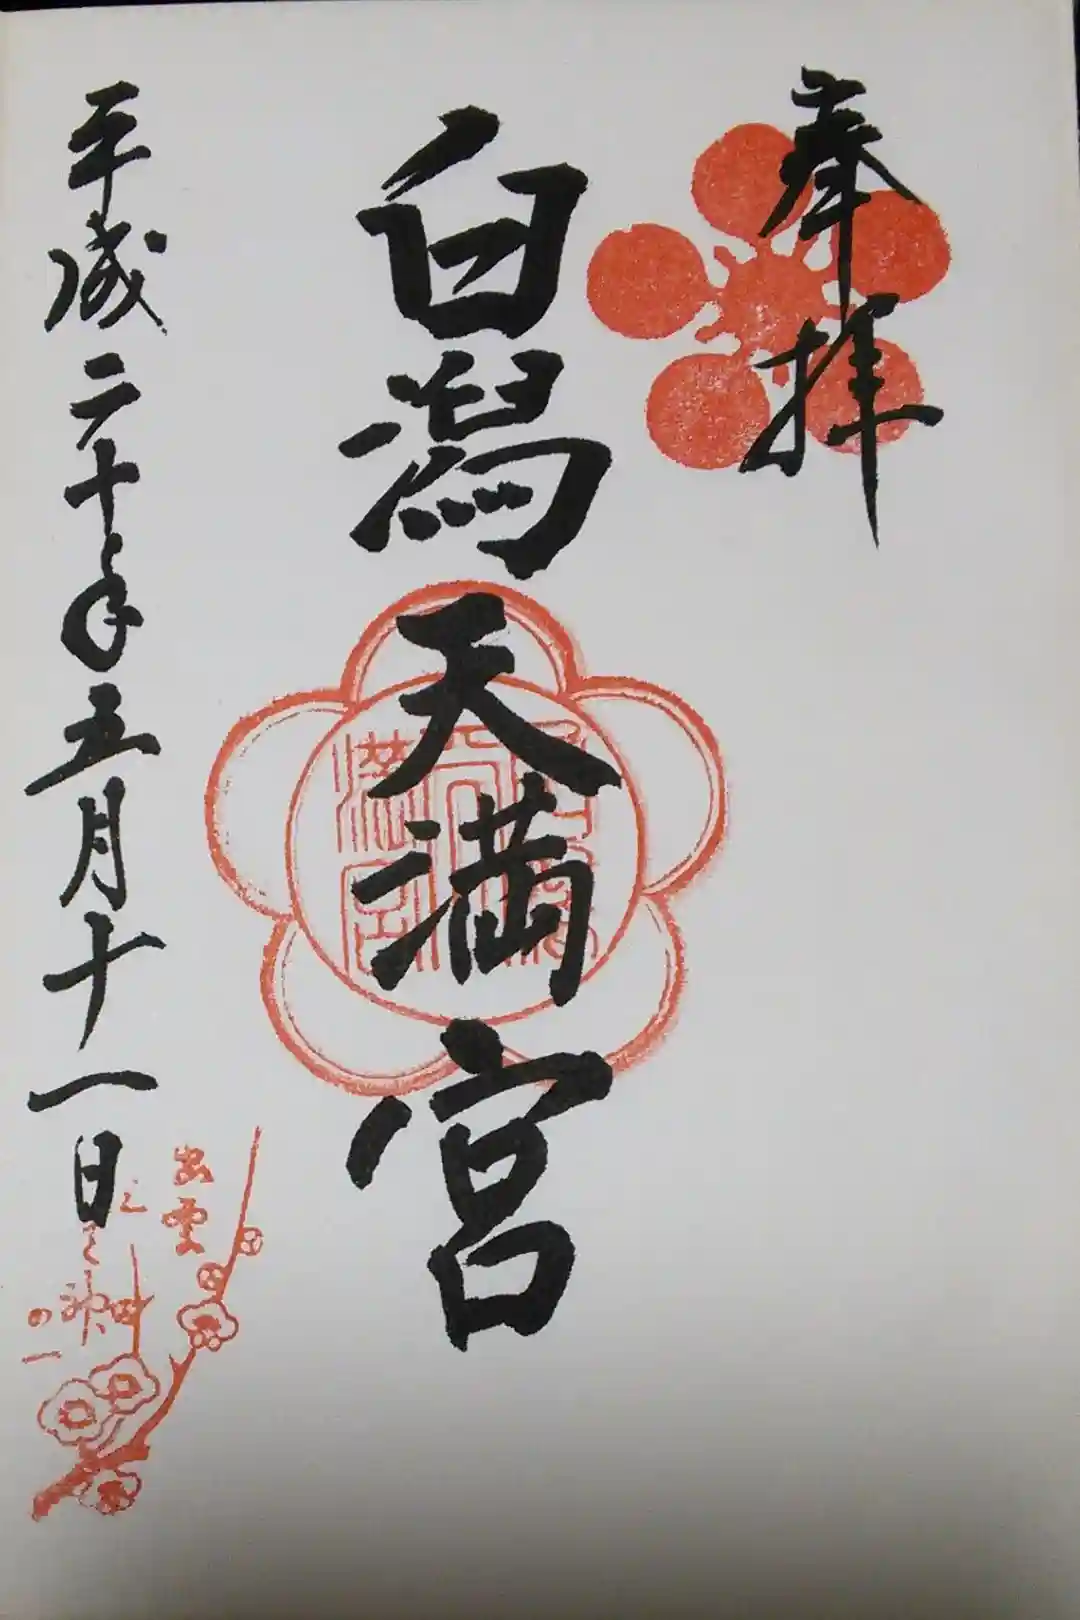 奉拝
白潟天満宮
平成二十年五月十一日
出雲